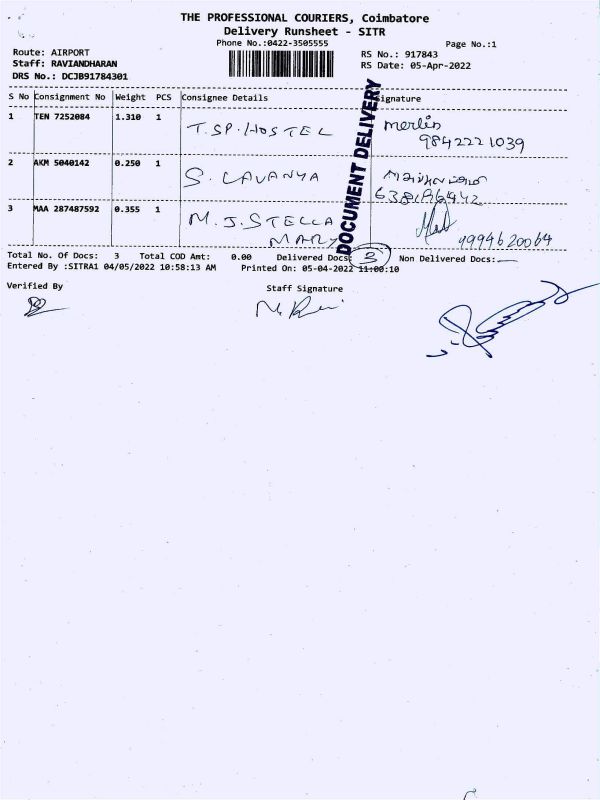 THE PROFESSIONAL COURIERS, Coimbatore
Delivery Runsheet - SITR
Phone No.:0422-3505555
Page No.:1
Route: AIRPORT
RS No.: 917843
Staff: RAVIANDHARAN
RS Date: 05-Apr-2022
DRS No.: DCJB91784301
S No Consignment No Weight PCS Consignee Details Signature
1 TEN 7252084 1.310 1 T.SP.HOSTEL merlin
9842221039
2 AKM 5040142 0.250 1 S. LAVANYA
3 MAA 287487592 0.355 1 M.J.STELLA
MARY 9994620064
DOCUMENT DELIVERY
Total No. Of Docs: 3 Total COD Amt: 0.00 Delivered Docs: 3 Non Delivered Docs:
Entered By :SITRA1 04/05/2022 10:58:13 AM Printed On: 05-04-2022 11:00:10
Verified By Staff Signature